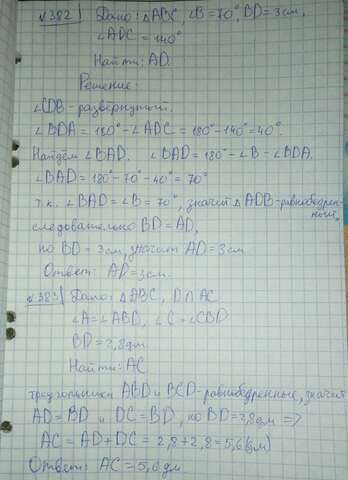 №382) Дано: △ABC, ∠B=70°, BD=3см,
∠ADC=140°
Найти: AD.
Решение:
∠CDB-развернутый.
∠BDA=180°-∠ADC=180°-140°=40°.
Найдём ∠BAD. ∠BAD=180°-∠B-∠BDA.
∠BAD=180°-70°-40°=70°
т.к. ∠BAD=∠B=70°, значит △ADB-равнобедрен-
ный,
следовательно BD=AD,
но BD=3см, значит AD=3см
Ответ: AD=3см.
№383) Дано: △ABC, D∩AC
∠A=∠ABD, ∠C=∠CBD
BD=2,8дм.
Найти: AC
треугольники ABD и BCD-равнобедренные, значит
AD=BD и DC=BD, но BD=2,8дм =>
AC=AD+DC=2,8+2,8=5,6(дм)
Ответ: AC=5,6дм